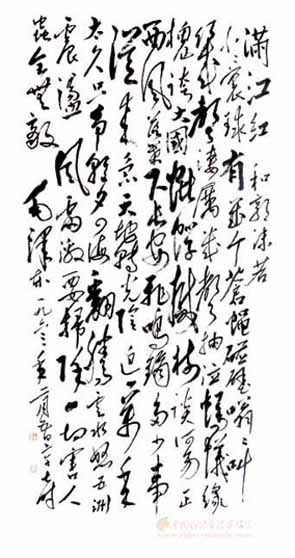 滿江红 和郭沫若
小小寰球有几个蒼蝇碰壁嗡嗡叫
几声凄厉几声抽泣蚂蟻缘
槐誇大國蚍蜉撼树谈何易正
西风落葉下长安飛鸣镝多少事
从来急天地转光陰迫一萬年
太久只争朝夕四海翻腾云水怒五洲
震盪风雷激要掃除一切害人
虫全无敌
毛泽东 一九六三年